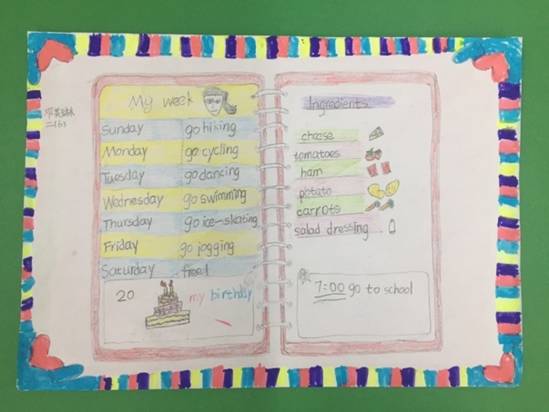 My week
Sunday go hiking
Monday go cycling
Tuesday go dancing
Wednesday go swimming
Thursday go ice-skating
Friday go jogging
Saturday free!
20 my birthday
Ingredients
cheese
tomatoes
ham
potato
carrots
salad dressing
7:00 go to school